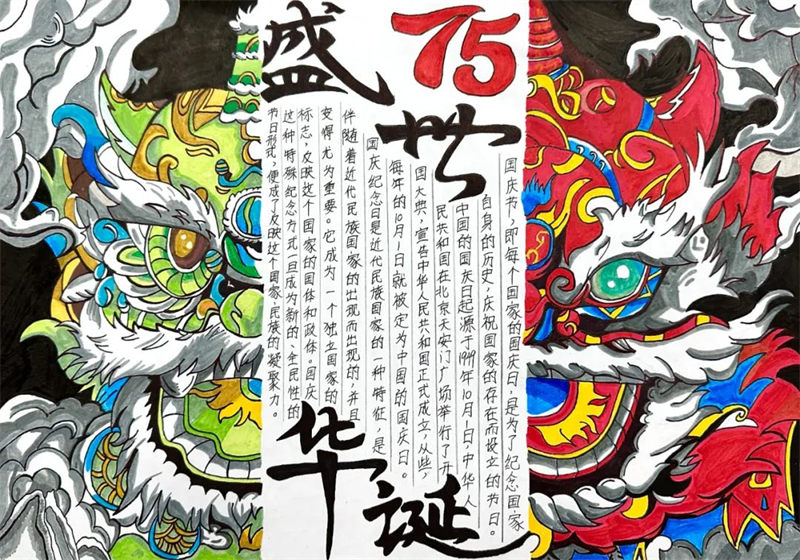 75
盛
世
华
诞
国庆节，即每个国家的国庆日，是为了纪念国家
自身的历史，庆祝国家的存在而设立的节日。
中国的国庆日起源于1949年10月1日，中华人
民共和国在北京天安门广场举行了开
国大典，宣告中华人民共和国正式成立，从些，
每年的10月1日就被定为中国的国庆日。
国庆纪念日是近代民族国家的一种特征，是
伴随着近代民族国家的出现而出现的，并且
变得尤为重要。它成为一个独立国家的
标志，反映这个国家的国体和政体。国庆
这种特殊纪念方式一旦成为新的、全民性的
节日形式，便成了反映这个国家、民族的凝聚力。